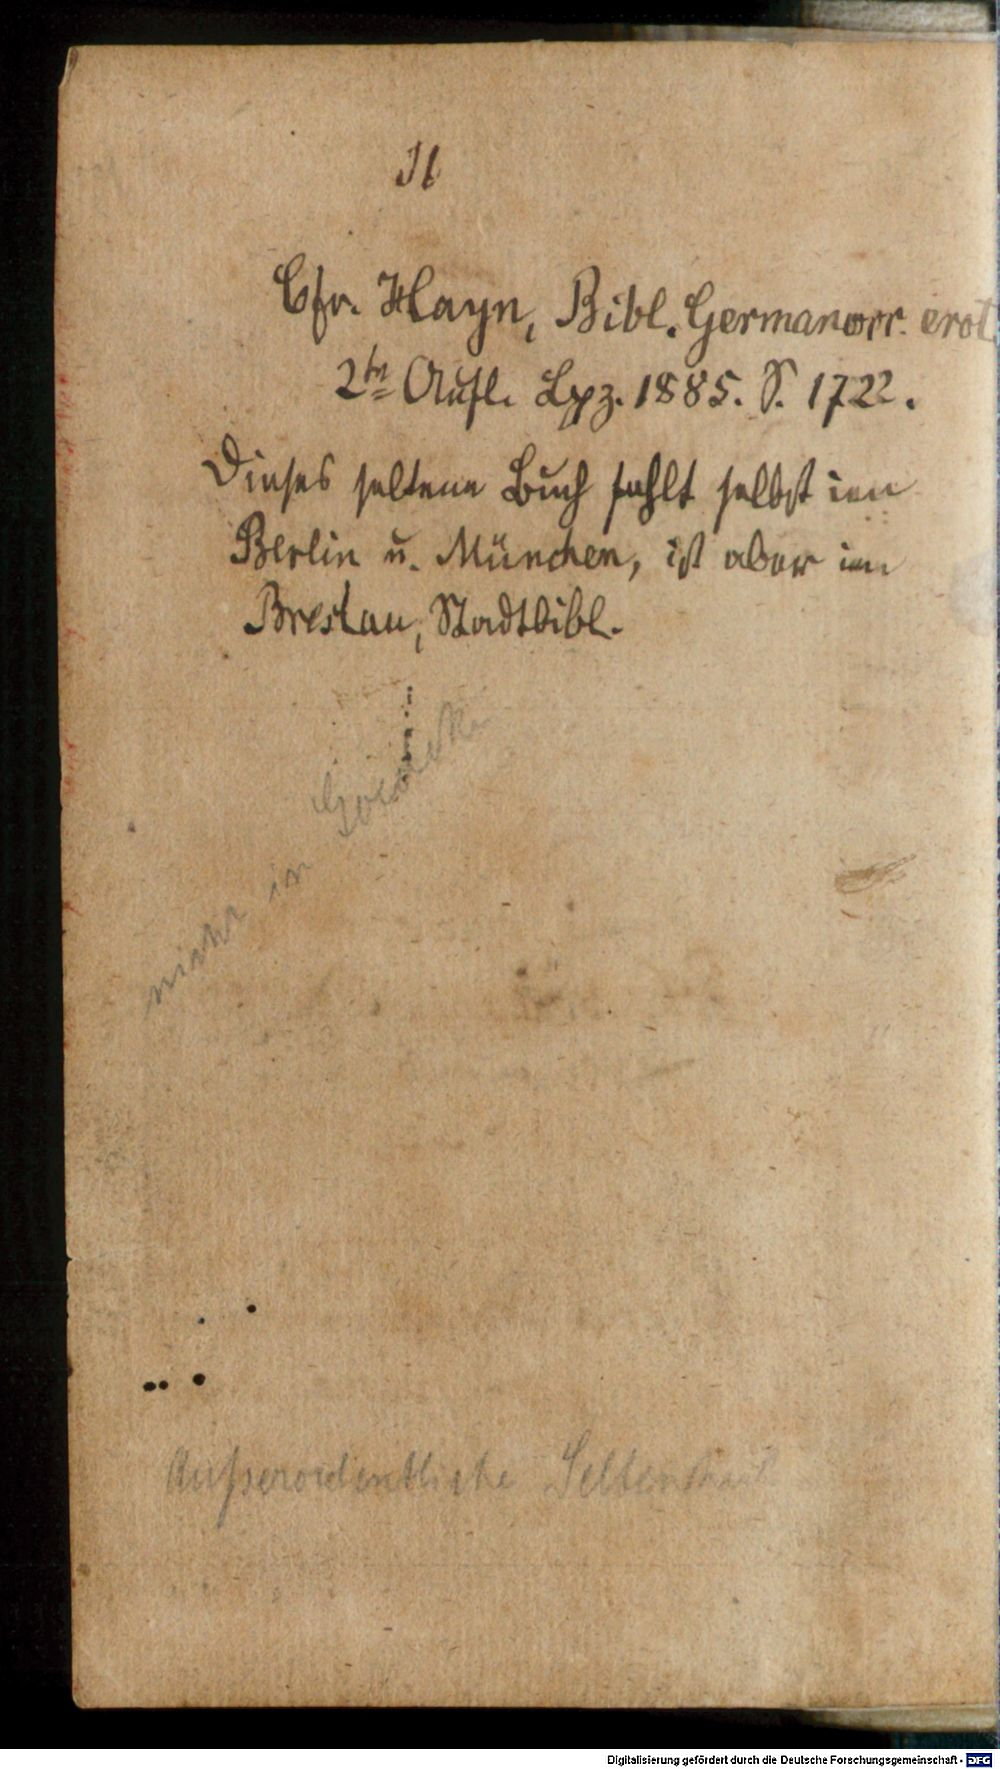 Cfr. Hayn, Bibl. Germanorr. erot.
2te Aufl. Lpz. 1885. S. 172².
Dieses seltene Buch fehlt selbst in
Berlin u. München, ist aber in
Breslau, Stadtbibl.
nicht in Goedeke
Außerordentliche Seltenheit
Digitalisierung gefördert durch die Deutsche Forschungsgemeinschaft - DFG